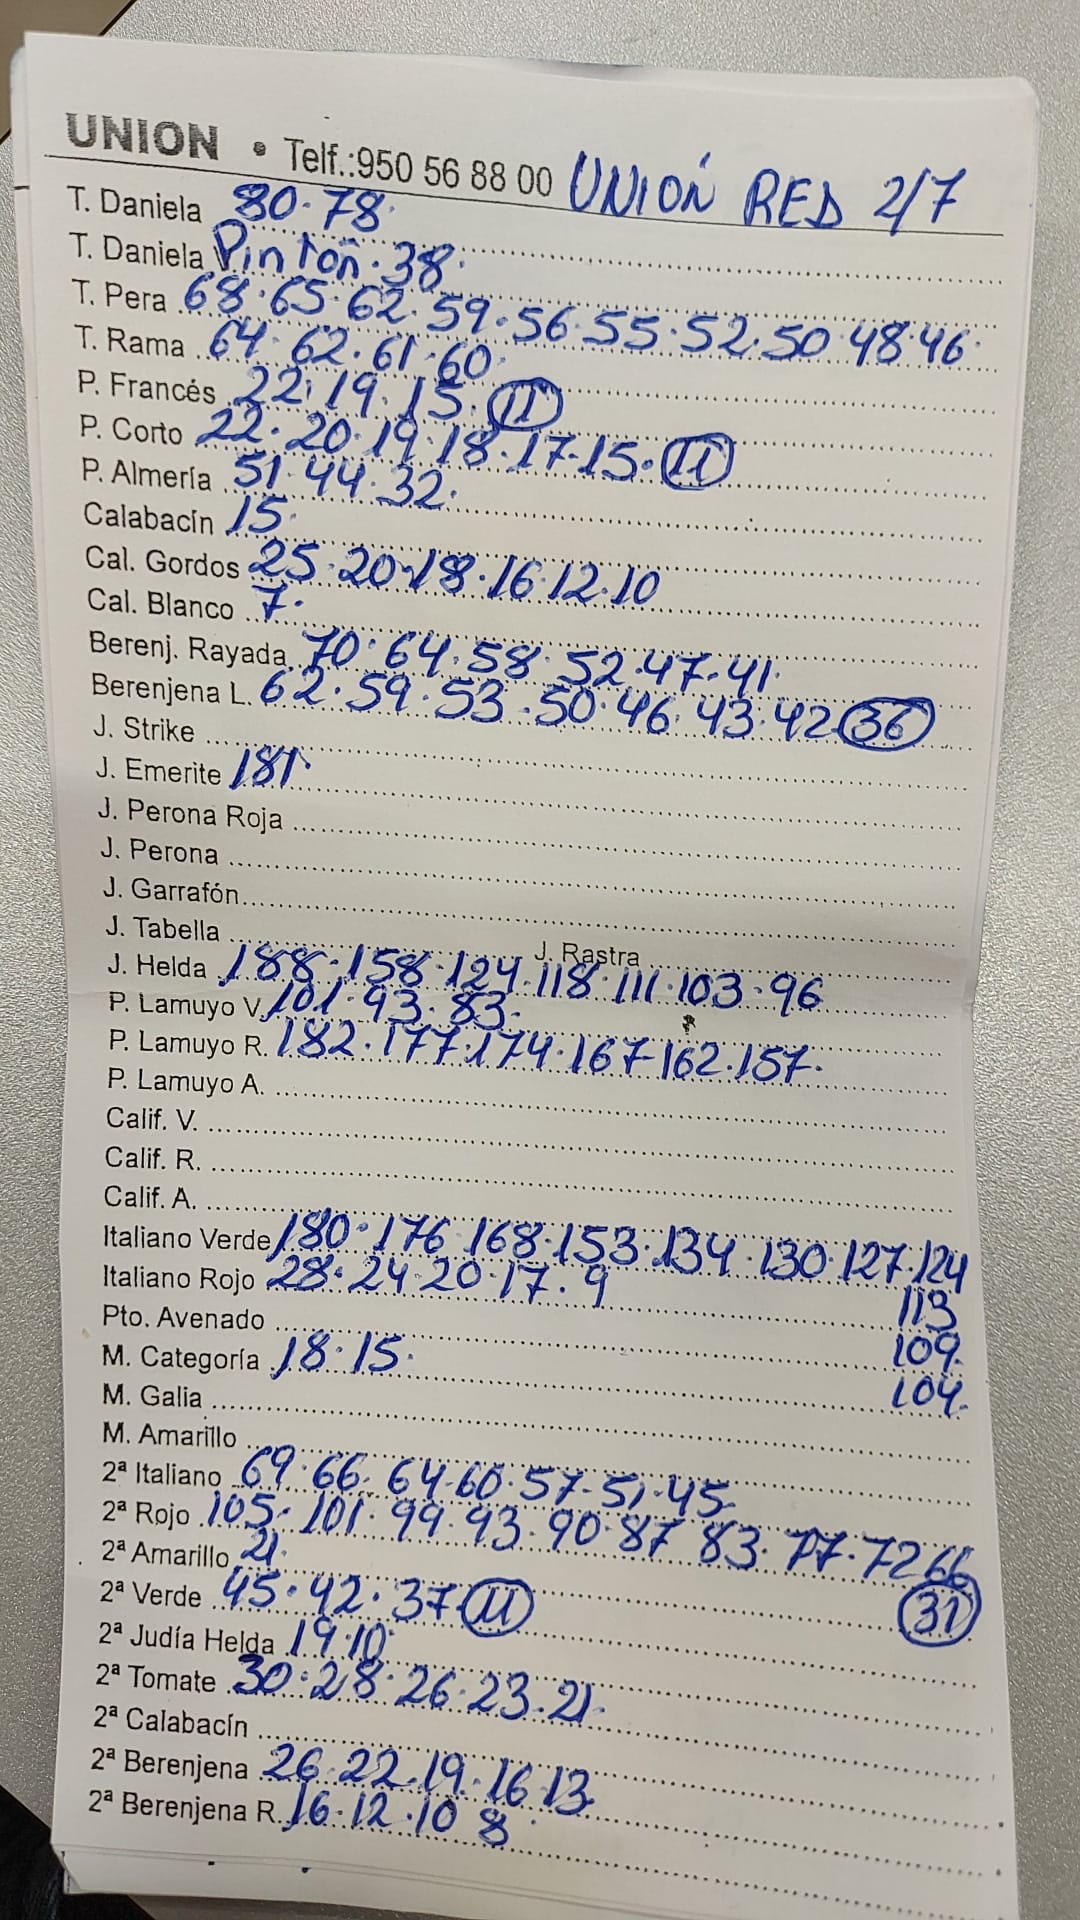 UNION • Telf.:950 56 88 00 UNIÓN RED 2/7
T. Daniela 80·78·
T. Daniela Pinton·38·
T. Pera 68·65·62·59·56·55·52·50·48·46·
T. Rama 64·62·61·60·
P. Francés 22·19·15·11
P. Corto 22·20·19·18·17·15·11
P. Almería 51·44·32·
Calabacín 15·
Cal. Gordos 25·20·18·16·12·10
Cal. Blanco 7·
Berenj. Rayada 70·64·58·52·47·41·
Berenjena L. 62·59·53·50·46·43·42 36
J. Strike
J. Emerite 181·
J. Perona Roja
J. Perona
J. Garrafón
J. Tabella J. Rastra
J. Helda 188·158·124·118·111·103·96
P. Lamuyo V. 101·93·83·
P. Lamuyo R. 182·177·174·167·162·157·
P. Lamuyo A.
Calif. V.
Calif. R.
Calif. A.
Italiano Verde 180·176 168·153·134·130·127·124
Italiano Rojo 28·24·20·17·9 113
Pto. Avenado 109·
M. Categoría 18·15· 104·
M. Galia
M. Amarillo
2ª Italiano 69·66·64·60·57·51·45
2ª Rojo 105·101·99·93·90·87 83·77·72 66
2ª Amarillo 21· 31
2ª Verde 45·42·37 11
2ª Judía Helda 19·10·
2ª Tomate 30·28·26·23·21·
2ª Calabacín
2ª Berenjena 26·22·19·16·13
2ª Berenjena R. 16·12·10 8·